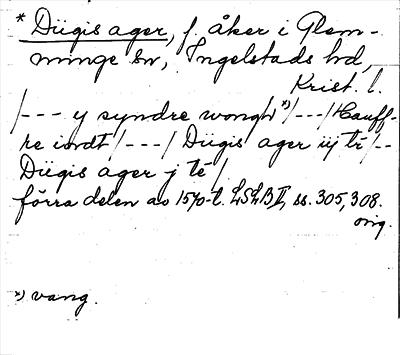 * Dügis ager, f. åker i Glem-
minge sn, Ingelstads hd,
Krist. l.
/--- y syndre wongh *) /---/ Hauff-
re iordt /---/ Dügis ager iij té /--
Dügis ager j té /
förra delen av 1570-t. LSLB II, ss. 305, 308.
orig.
*) vang.